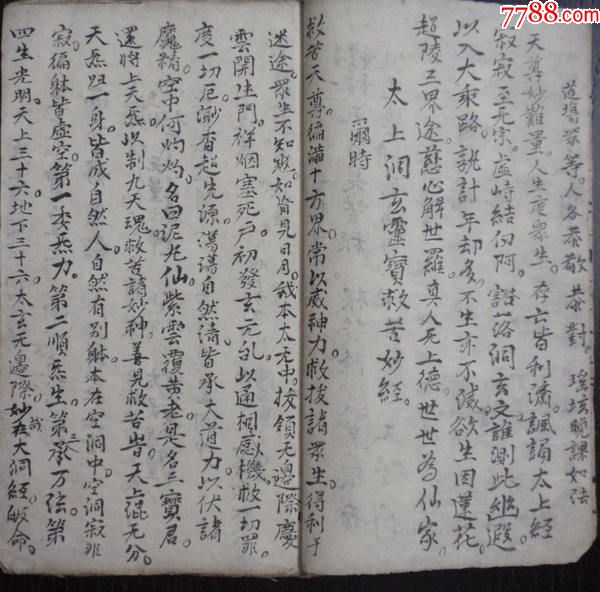 7788.com
道場眾等。人各恭敬恭對。瑤壇晚課如法
天尊妙難量。人生度眾生。存亡皆利濟。諷誦太上經
寂寂至无宗。虛峙結仞阿。豁落洞玄文。誰測此幽遐
以入大乘路。孰計年却多。不生亦不滅。欲生因蓮花
超陵三界途。慈心解世羅。真人无上德。世世為仙家。
太上洞玄靈寶救苦妙經。
爾時
救苦天尊。徧滿十方界。常以威神力。救拔諸眾生。得利于
迷途。眾生不知覺。如盲見日月。我本太无中。按領无邊際。慶
雲開生門。祥烟塞死戶。初發玄无。以通感機。救一切罪。
度一切厄。渺杳超先源。蕩蕩自然清。皆承大道力。以伏諸
魔精。空中何灼灼。名曰泥丸仙。紫雲覆黃老。是名三寶君。
還將上天炁。以制九天魂。救苦諸妙神。善見救苦皆。天上混无分。
天炁归一身。皆成自然人。自然有別躰。本在空洞中。空洞寂非
寂。徧躰皆虛空。第一委炁力。第二順炁生。第三承万法。第
四生光明。天上三十六。地下三十六。太玄无邊際。妙哉大洞經。皈命。